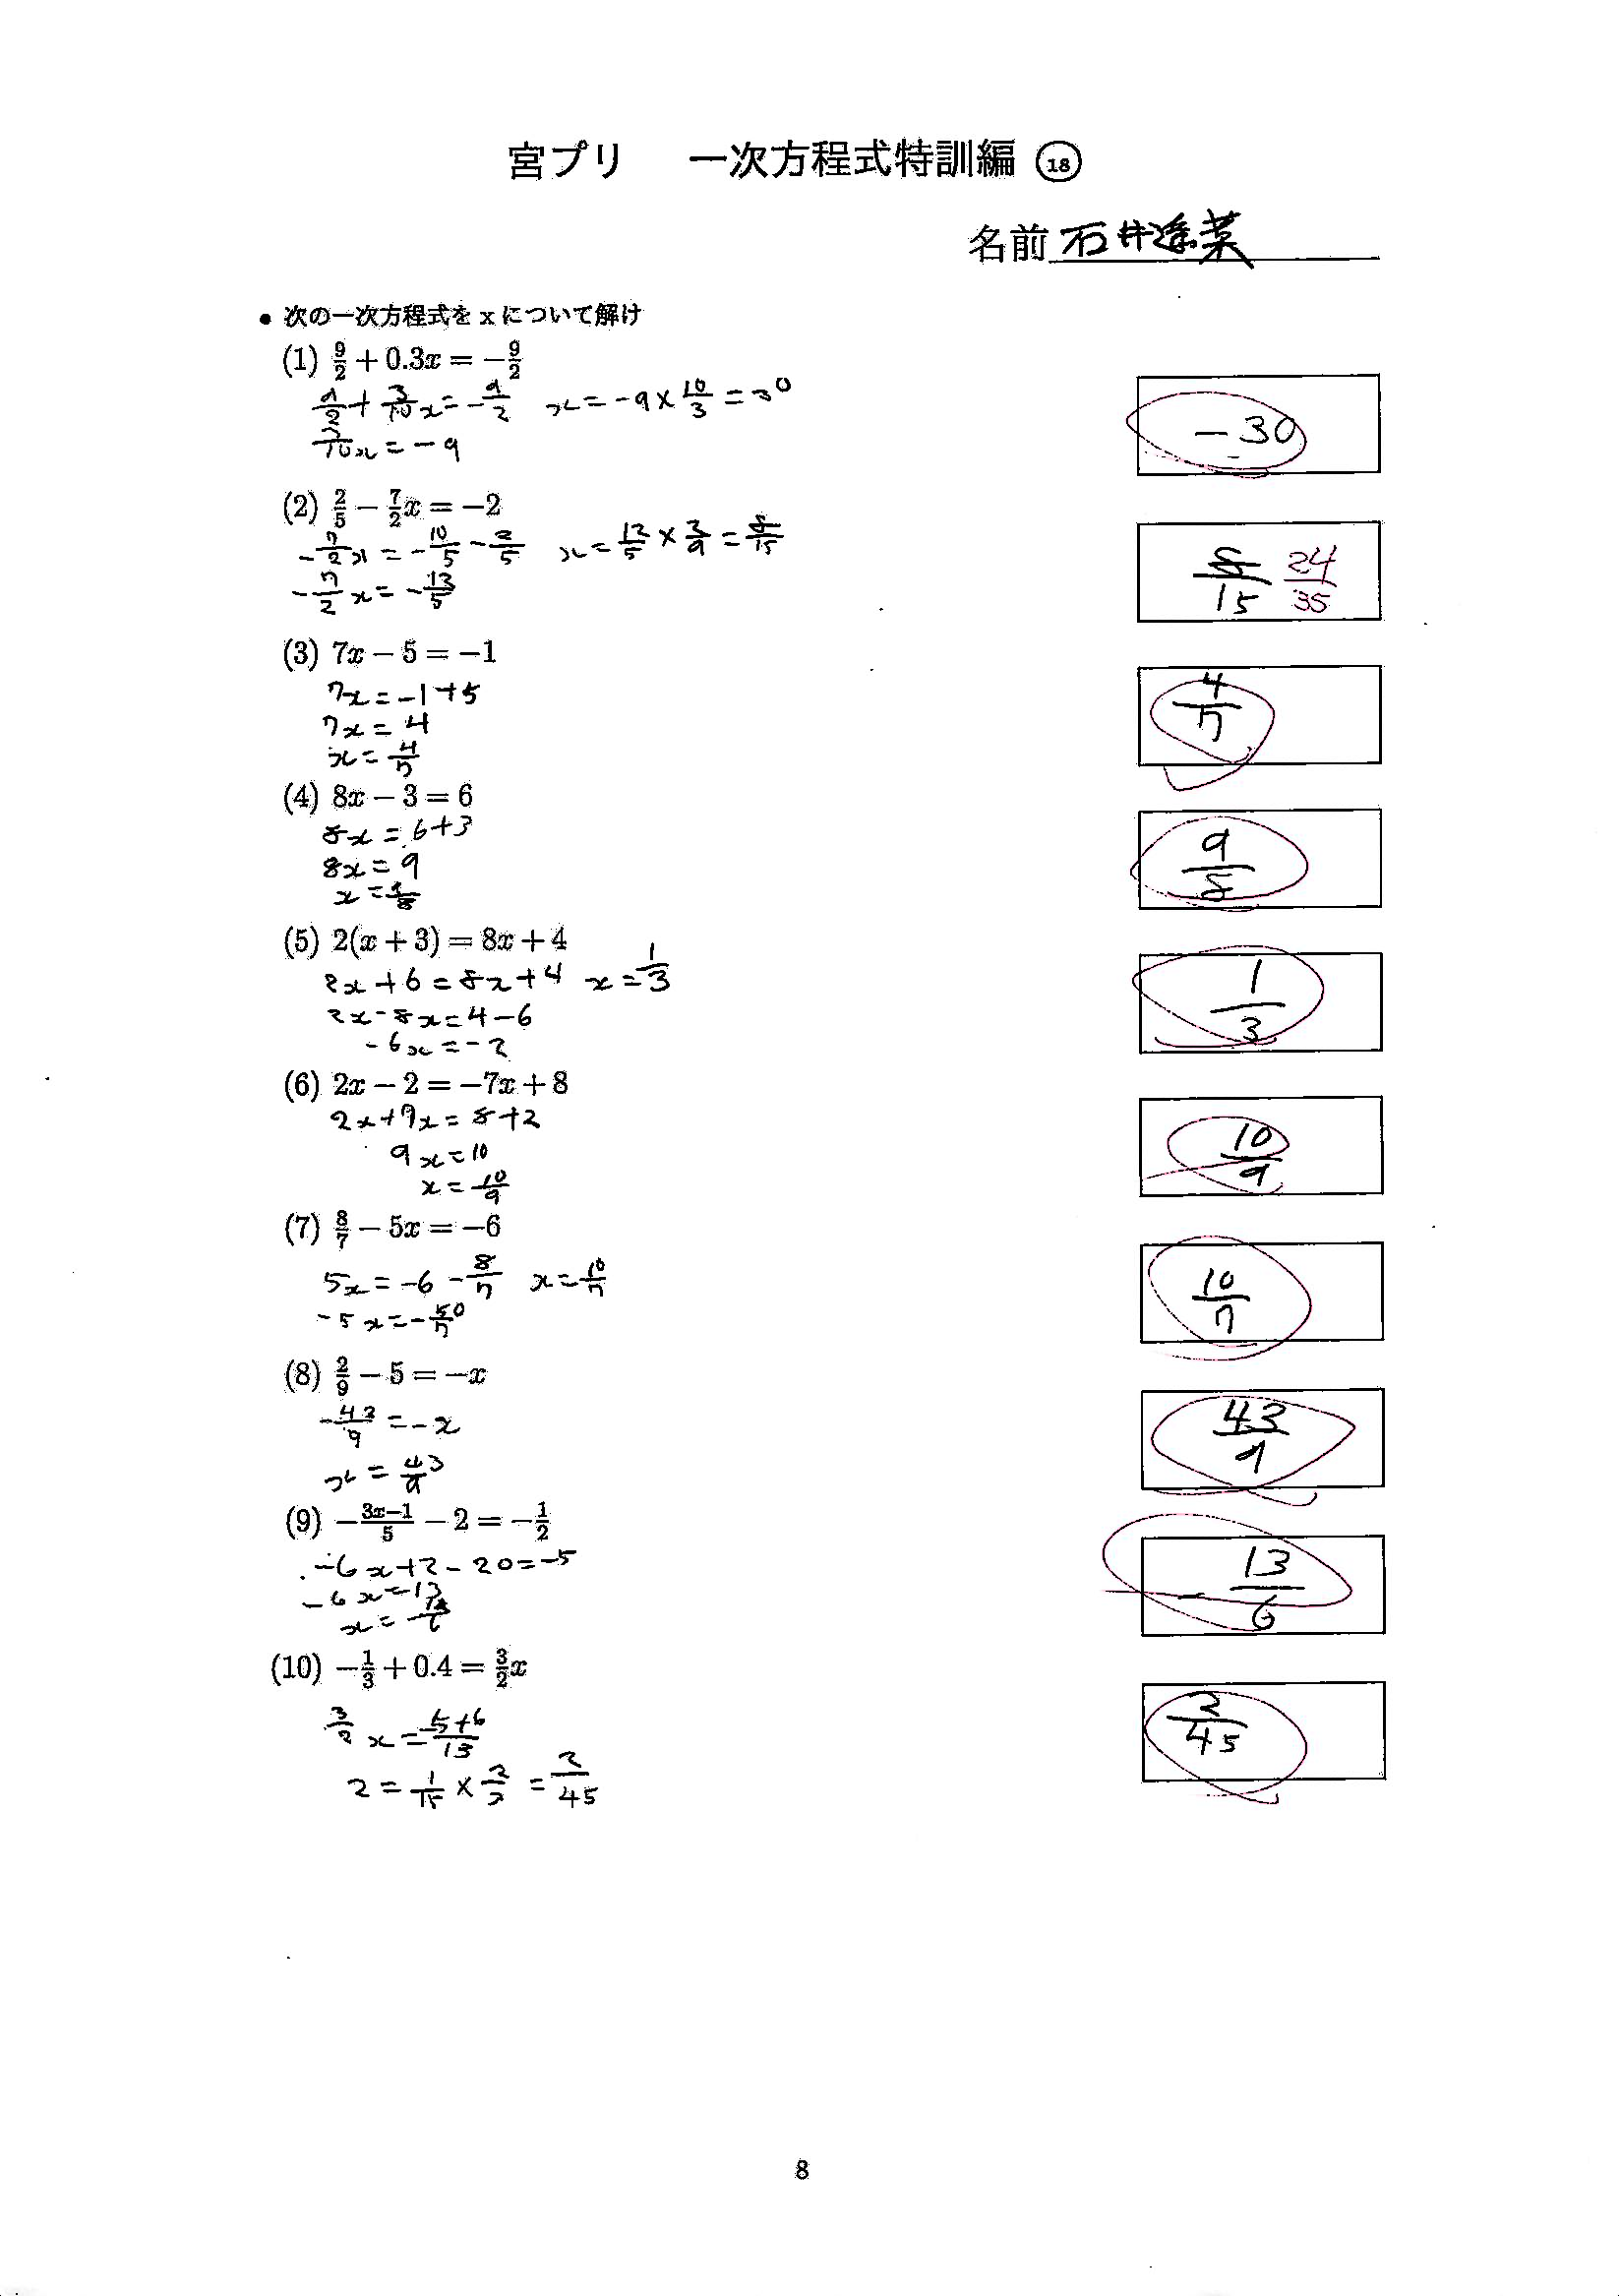 宮プリ 一次方程式特訓編 ⑱
名前 石井遥菜
• 次の一次方程式を x について解け
(1) 9/2 + 0.3x = −9/2
9/2 + 3/10 x = −9/2 x = −9 × 10/3 = 30
3/10 x = −9
−30
(2) 2/5 − 7/2 x = −2
−7/2 x = −10/5 − 2/5
−7/2 x = −12/5
8/15 24/35
(3) 7x − 5 = −1
7x = −1+5
7x = 4
x = 4/7
4/7
(4) 8x − 3 = 6
8x = 6+3
8x = 9
x = 9/8
9/8
(5) 2(x + 3) = 8x + 4
2x + 6 = 8x + 4 x = 1/3
2x − 8x = 4 − 6
−6x = −2
1/3
(6) 2x − 2 = −7x + 8
2x + 7x = 8 + 2
9x = 10
x = 10/9
10/9
(7) 8/7 − 5x = −6
5x = −6 − 8/7 x = 10/7
−5x = −50/7
10/7
(8) 2/9 − 5 = −x
−43/9 = −x
x = 43/9
43/9
(9) −(3x−1)/5 − 2 = −1/2
−6x + 2 − 20 = −5
−6x = 13
x = −13/6
−13/6
(10) −1/3 + 0.4 = 3/2 x
3/2 x = (−5+6)/15
x = 1/15 × 2/3 = 2/45
2/45
8